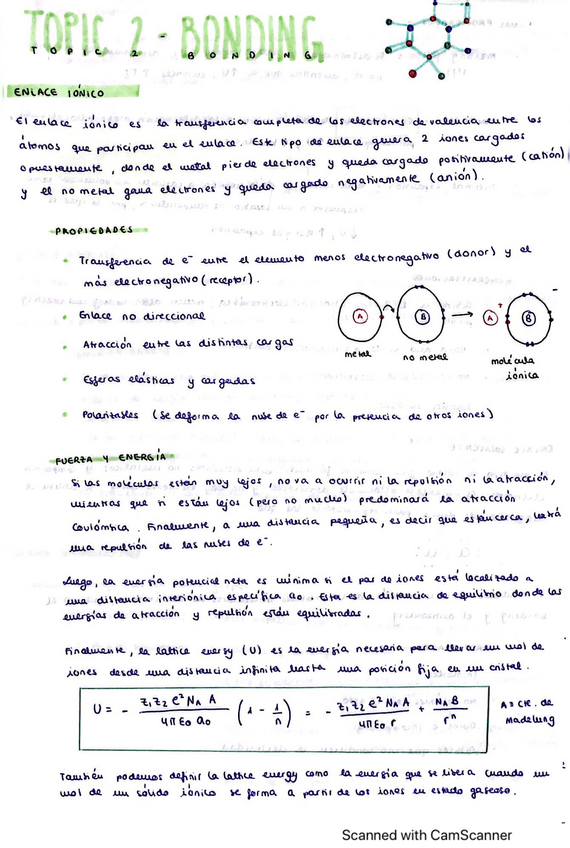 TOPIC 2 - BONDING
TOPIC 2 BONDING
ENLACE IÓNICO
El enlace iónico es la transferencia completa de los electrones de valencia entre los
átomos que participan en el enlace. Este tipo de enlace genera 2 iones cargados
opuestamente, donde el metal pierde electrones y queda cargado positivamente (catión)
y el no metal gana electrones y queda cargado negativamente (anión).
PROPIEDADES
• Transferencia de e⁻ entre el elemento menos electronegativo (donor) y el
más electronegativo (receptor).
• Enlace no direccional
• Atracción entre las distintas cargas
• Esferas elásticas y cargadas
• Polarizables (se deforma la nube de e⁻ por la presencia de otros iones)
A B → A + B -
metal no metal molécula
iónica
FUERZA Y ENERGÍA
Si las moléculas están muy lejos, no va a ocurrir ni la repulsión ni la atracción,
mientras que si están lejos (pero no mucho) predominará la atracción
Coulómbica. Finalmente, a una distancia pequeña, es decir que están cerca, habrá
una repulsión de las nubes de e⁻.
Luego, la energía potencial neta es mínima si el par de iones está localizado a
una distancia interiónica específica a₀. Esta es la distancia de equilibrio donde las
energías de atracción y repulsión están equilibradas.
Finalmente, la lattice energy (U) es la energía necesaria para llevar un mol de
iones desde una distancia infinita hasta una posición fija en un cristal.
U = - z₁z₂e²N_A A / 4πε₀ a₀ (1 - 1/n) = - z₁z₂e²N_A A / 4πε₀ r + N_A B / rⁿ
A = cte. de
Madelung
También podemos definir la lattice energy como la energía que se libera cuando un
mol de un sólido iónico se forma a partir de los iones en estado gaseoso.
Scanned with CamScanner